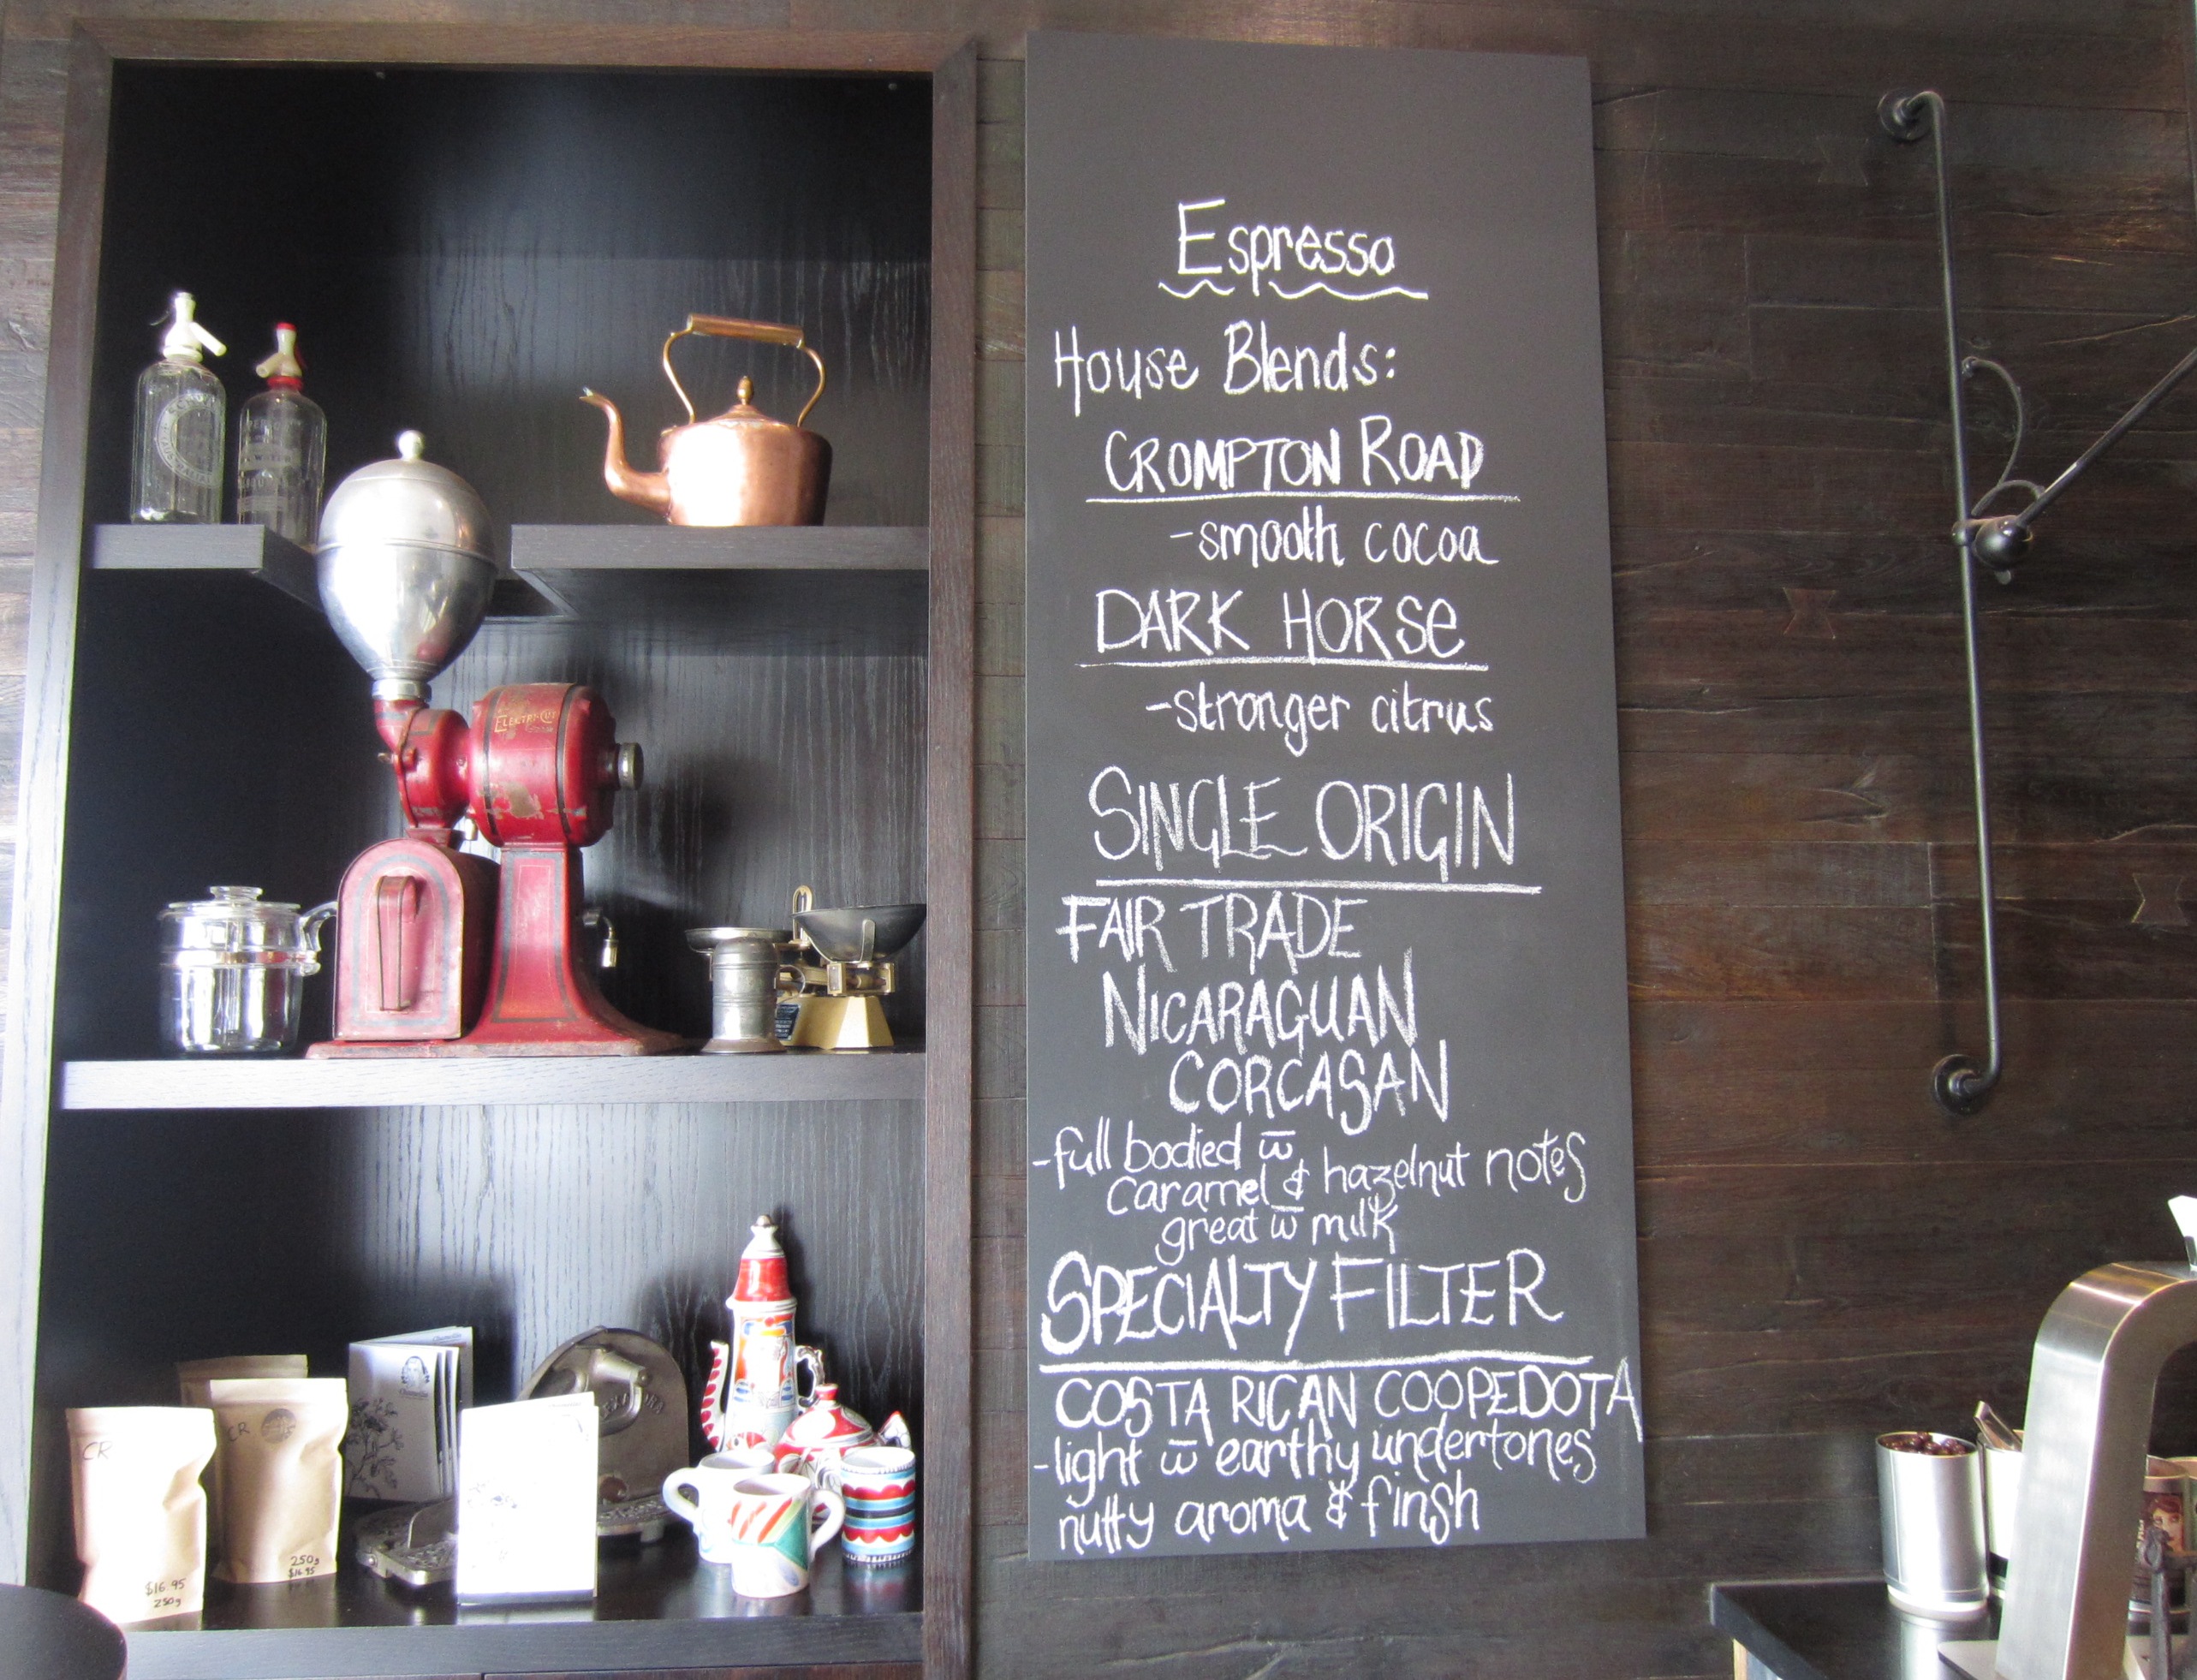 Espresso
House Blends:
CROMPTON ROAD
-smooth cocoa
DARK HORSE
-stronger citrus
SINGLE ORIGIN
FAIR TRADE
NICARAGUAN
CORCASAN
-full bodied w̅
caramel & hazelnut notes
great w̅ milk
SPECIALTY FILTER
COSTA RICAN COOPEDOTA
-light w̅ earthy undertones
nutty aroma & finsh
CR
$16.95
250g
CR
250g
$16.95